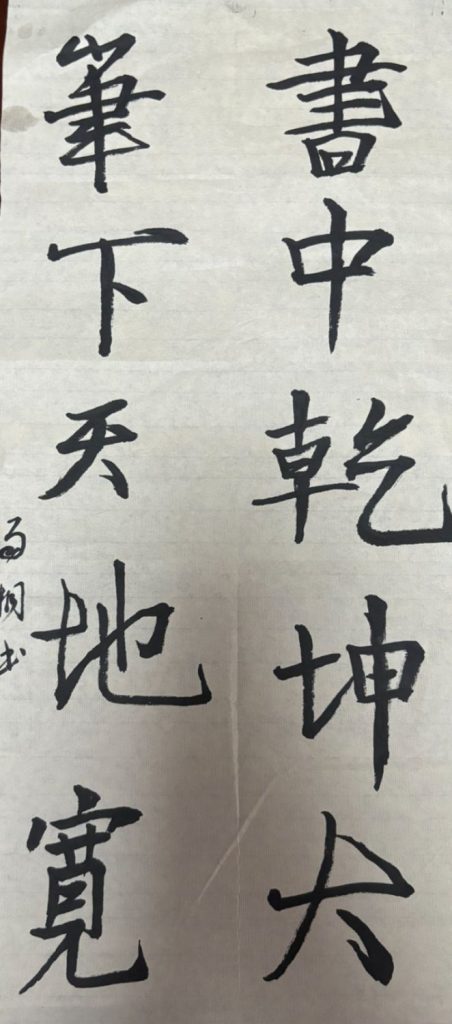 書中乾坤大
筆下天地寬
雨桐书